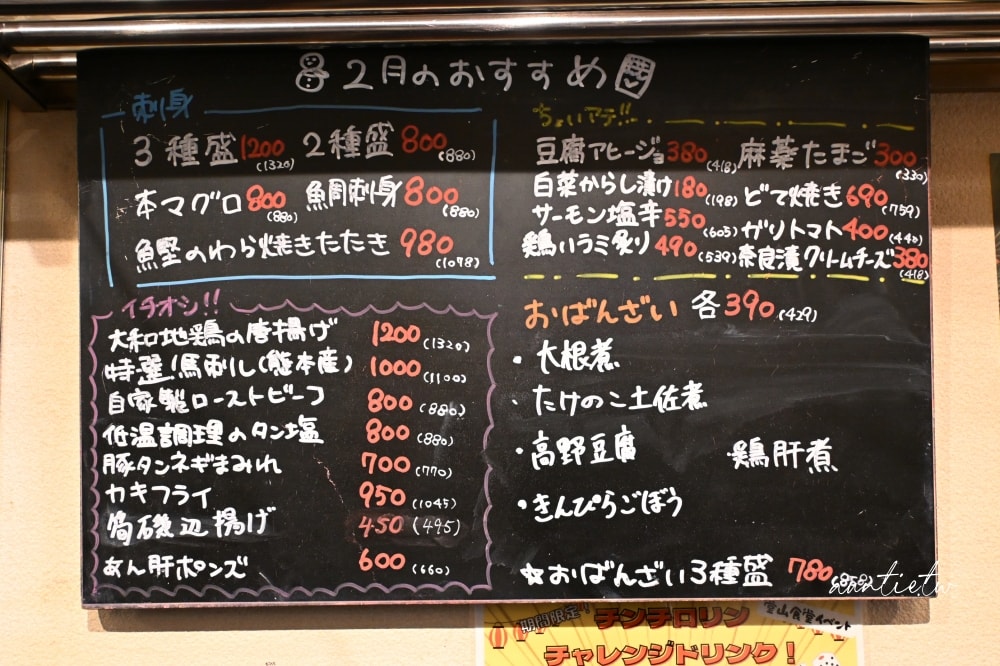 2月のおすすめ
刺身
3種盛 1200 (1320) 2種盛 800 (880)
本マグロ 800 (880) 鯛刺身 800 (880)
鰹のわら焼きたたき 980 (1078)
イチオシ!!
大和地鶏の唐揚げ 1200 (1320)
特選!馬刺し(熊本産) 1000 (1100)
自家製ローストビーフ 800 (880)
低温調理のタン塩 800 (880)
豚タンネギまみれ 700 (770)
カキフライ 950 (1045)
磯辺揚げ 450 (495)
あん肝ポンズ 600 (660)
ちょいアテ!!
豆腐アヒージョ 380 (418) 麻薬たまご 300 (330)
白菜からし漬け 180 (198) どて焼き 690 (759)
サーモン塩辛 550 (605) ガリトマト 400 (440)
鶏ハラミ炙り 490 (539) 奈良漬クリームチーズ 380 (418)
おばんざい 各390 (429)
・大根煮
・たけのこ土佐煮
・高野豆腐 ・鶏肝煮
・きんぴらごぼう
☆おばんざい3種盛 780 (858)
期間限定!
チンチロリン
チャレンジドリンク!
食堂イベント